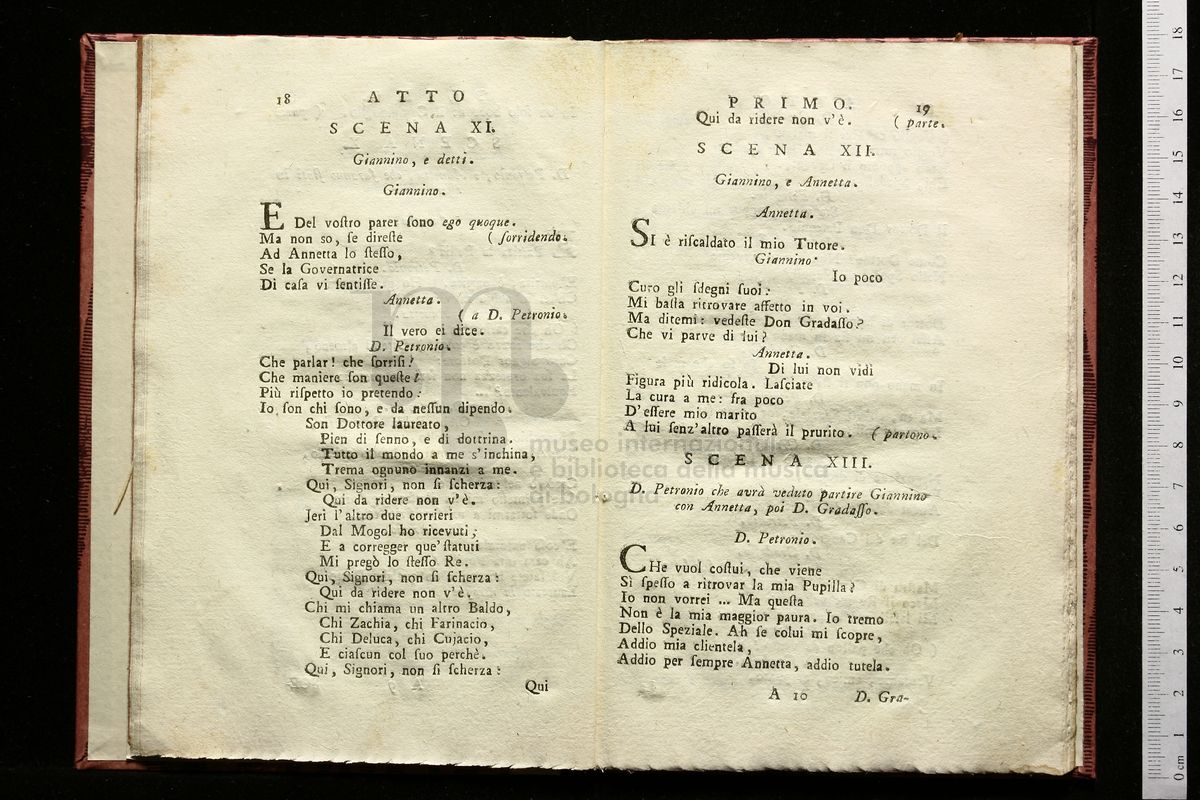 18 ATTO
SCENA XI.
Giannino, e detti.
Giannino.
E Del voſtro parer ſono ego quoque.
Ma non so, ſe direſte ( ſorridendo.
Ad Annetta lo ſteſſo,
Se la Governatrice
Di caſa vi ſentiſſe.
Annetta.
( a D. Petronio.
Il vero ei dice.
D. Petronio.
Che parlar! che ſorriſi!
Che maniere ſon queſte!
Più riſpetto io pretendo:
Io ſon chi ſono, e da neſſun dipendo.
Son Dottore laureato,
Pien di ſenno, e di dottrina.
Tutto il mondo a me s'inchina,
Trema ognuno innanzi a me.
Qui, Signori, non ſi ſcherza:
Qui da ridere non v'è.
Jeri l'altro due corrieri
Dal Mogol ho ricevuti;
E a corregger que' ſtatuti
Mi pregò lo ſteſſo Re.
Qui, Signori, non ſi ſcherza:
Qui da ridere non v'è.
Chi mi chiama un altro Baldo,
Chi Zachia, chi Farinacio,
Chi Deluca, chi Cujacio,
E ciaſcun col ſuo perchè.
Qui, Signori, non ſi ſcherza:
Qui
PRIMO. 19
Qui da ridere non v'è. ( parte.
SCENA XII.
Giannino, e Annetta.
Annetta.
SI è riſcaldato il mio Tutore.
Giannino.
Io poco
Curo gli ſdegni ſuoi:
Mi baſta ritrovare affetto in voi.
Ma ditemi: vedeſte Don Gradaſſo?
Che vi parve di lui?
Annetta.
Di lui non vidi
Figura più ridicola. Laſciate
La cura a me: fra poco
D'eſſere mio marito
A lui ſenz'altro paſſerà il prurito. ( partono.
SCENA XIII.
D. Petronio che avrà veduto partire Giannino
con Annetta, poi D. Gradaſſo.
D. Petronio.
CHe vuol coſtui, che viene
Sì ſpeſſo a ritrovar la mia Pupilla?
Io non vorrei ... Ma queſta
Non è la mia maggior paura. Io tremo
Dello Speziale. Ah ſe colui mi ſcopre,
Addio mia clientela,
Addio per ſempre Annetta, addio tutela.
A 10 D. Gra-
m
museo internazionale e
e biblioteca della musica
di bologna
0 cm 1 2 3 4 5 6 7 8 9 10 11 12 13 14 15 16 17 18